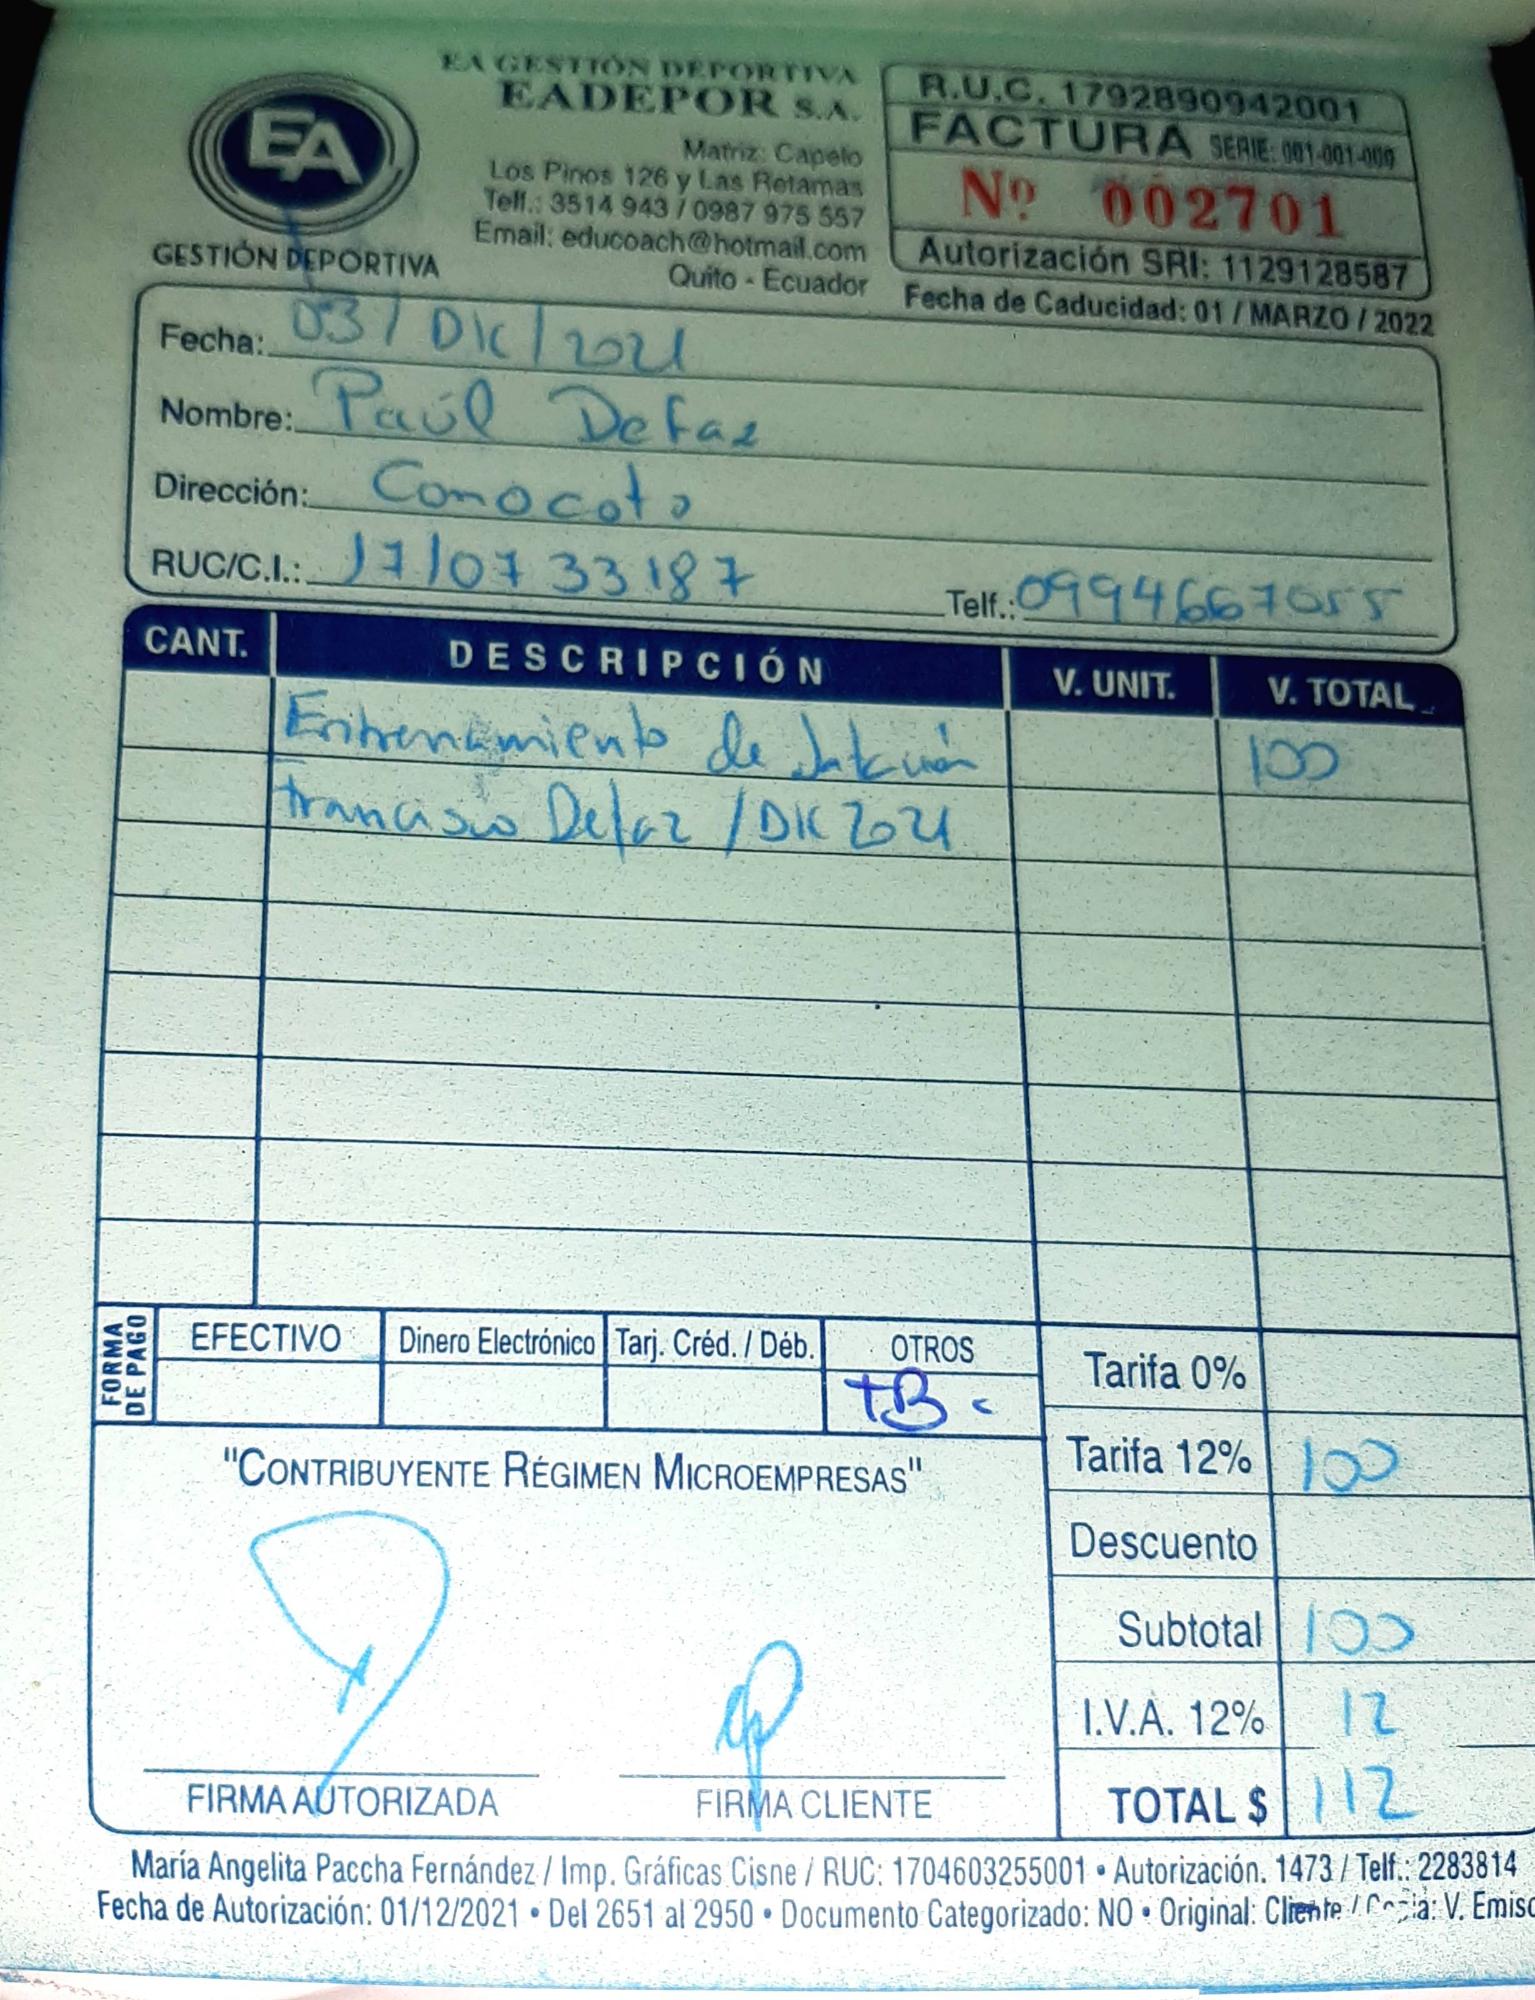 EA GESTIÓN DEPORTIVA
EADEPOR S.A.
EA
GESTIÓN DEPORTIVA
Matriz: Capelo
Los Pinos 126 y Las Retamas
Telf.: 3514 943 / 0987 975 557
Email: educoach@hotmail.com
Quito - Ecuador
R.U.C. 1792890942001
FACTURA SERIE: 001-001-000
Nº 002701
Autorización SRI: 1129128587
Fecha de Caducidad: 01 / MARZO / 2022
Fecha: 03 / Dic / 2021
Nombre: Paúl Defaz
Dirección: Conocoto
RUC/C.I.: 1710733187 Telf.: 0994667055
CANT. DESCRIPCIÓN V. UNIT. V. TOTAL
Entrenamiento de 100
Francisco Defaz / Dic 2021
FORMA DE PAGO
EFECTIVO Dinero Electrónico Tarj. Créd. / Déb. OTROS
TB
Tarifa 0%
Tarifa 12% 100
Descuento
Subtotal 100
I.V.A. 12% 12
TOTAL $ 112
"CONTRIBUYENTE RÉGIMEN MICROEMPRESAS"
FIRMA AUTORIZADA FIRMA CLIENTE
María Angelita Paccha Fernández / Imp. Gráficas Cisne / RUC: 1704603255001 • Autorización. 1473 / Telf.: 2283814
Fecha de Autorización: 01/12/2021 • Del 2651 al 2950 • Documento Categorizado: NO • Original: Cliente / Copia: V. Emiso